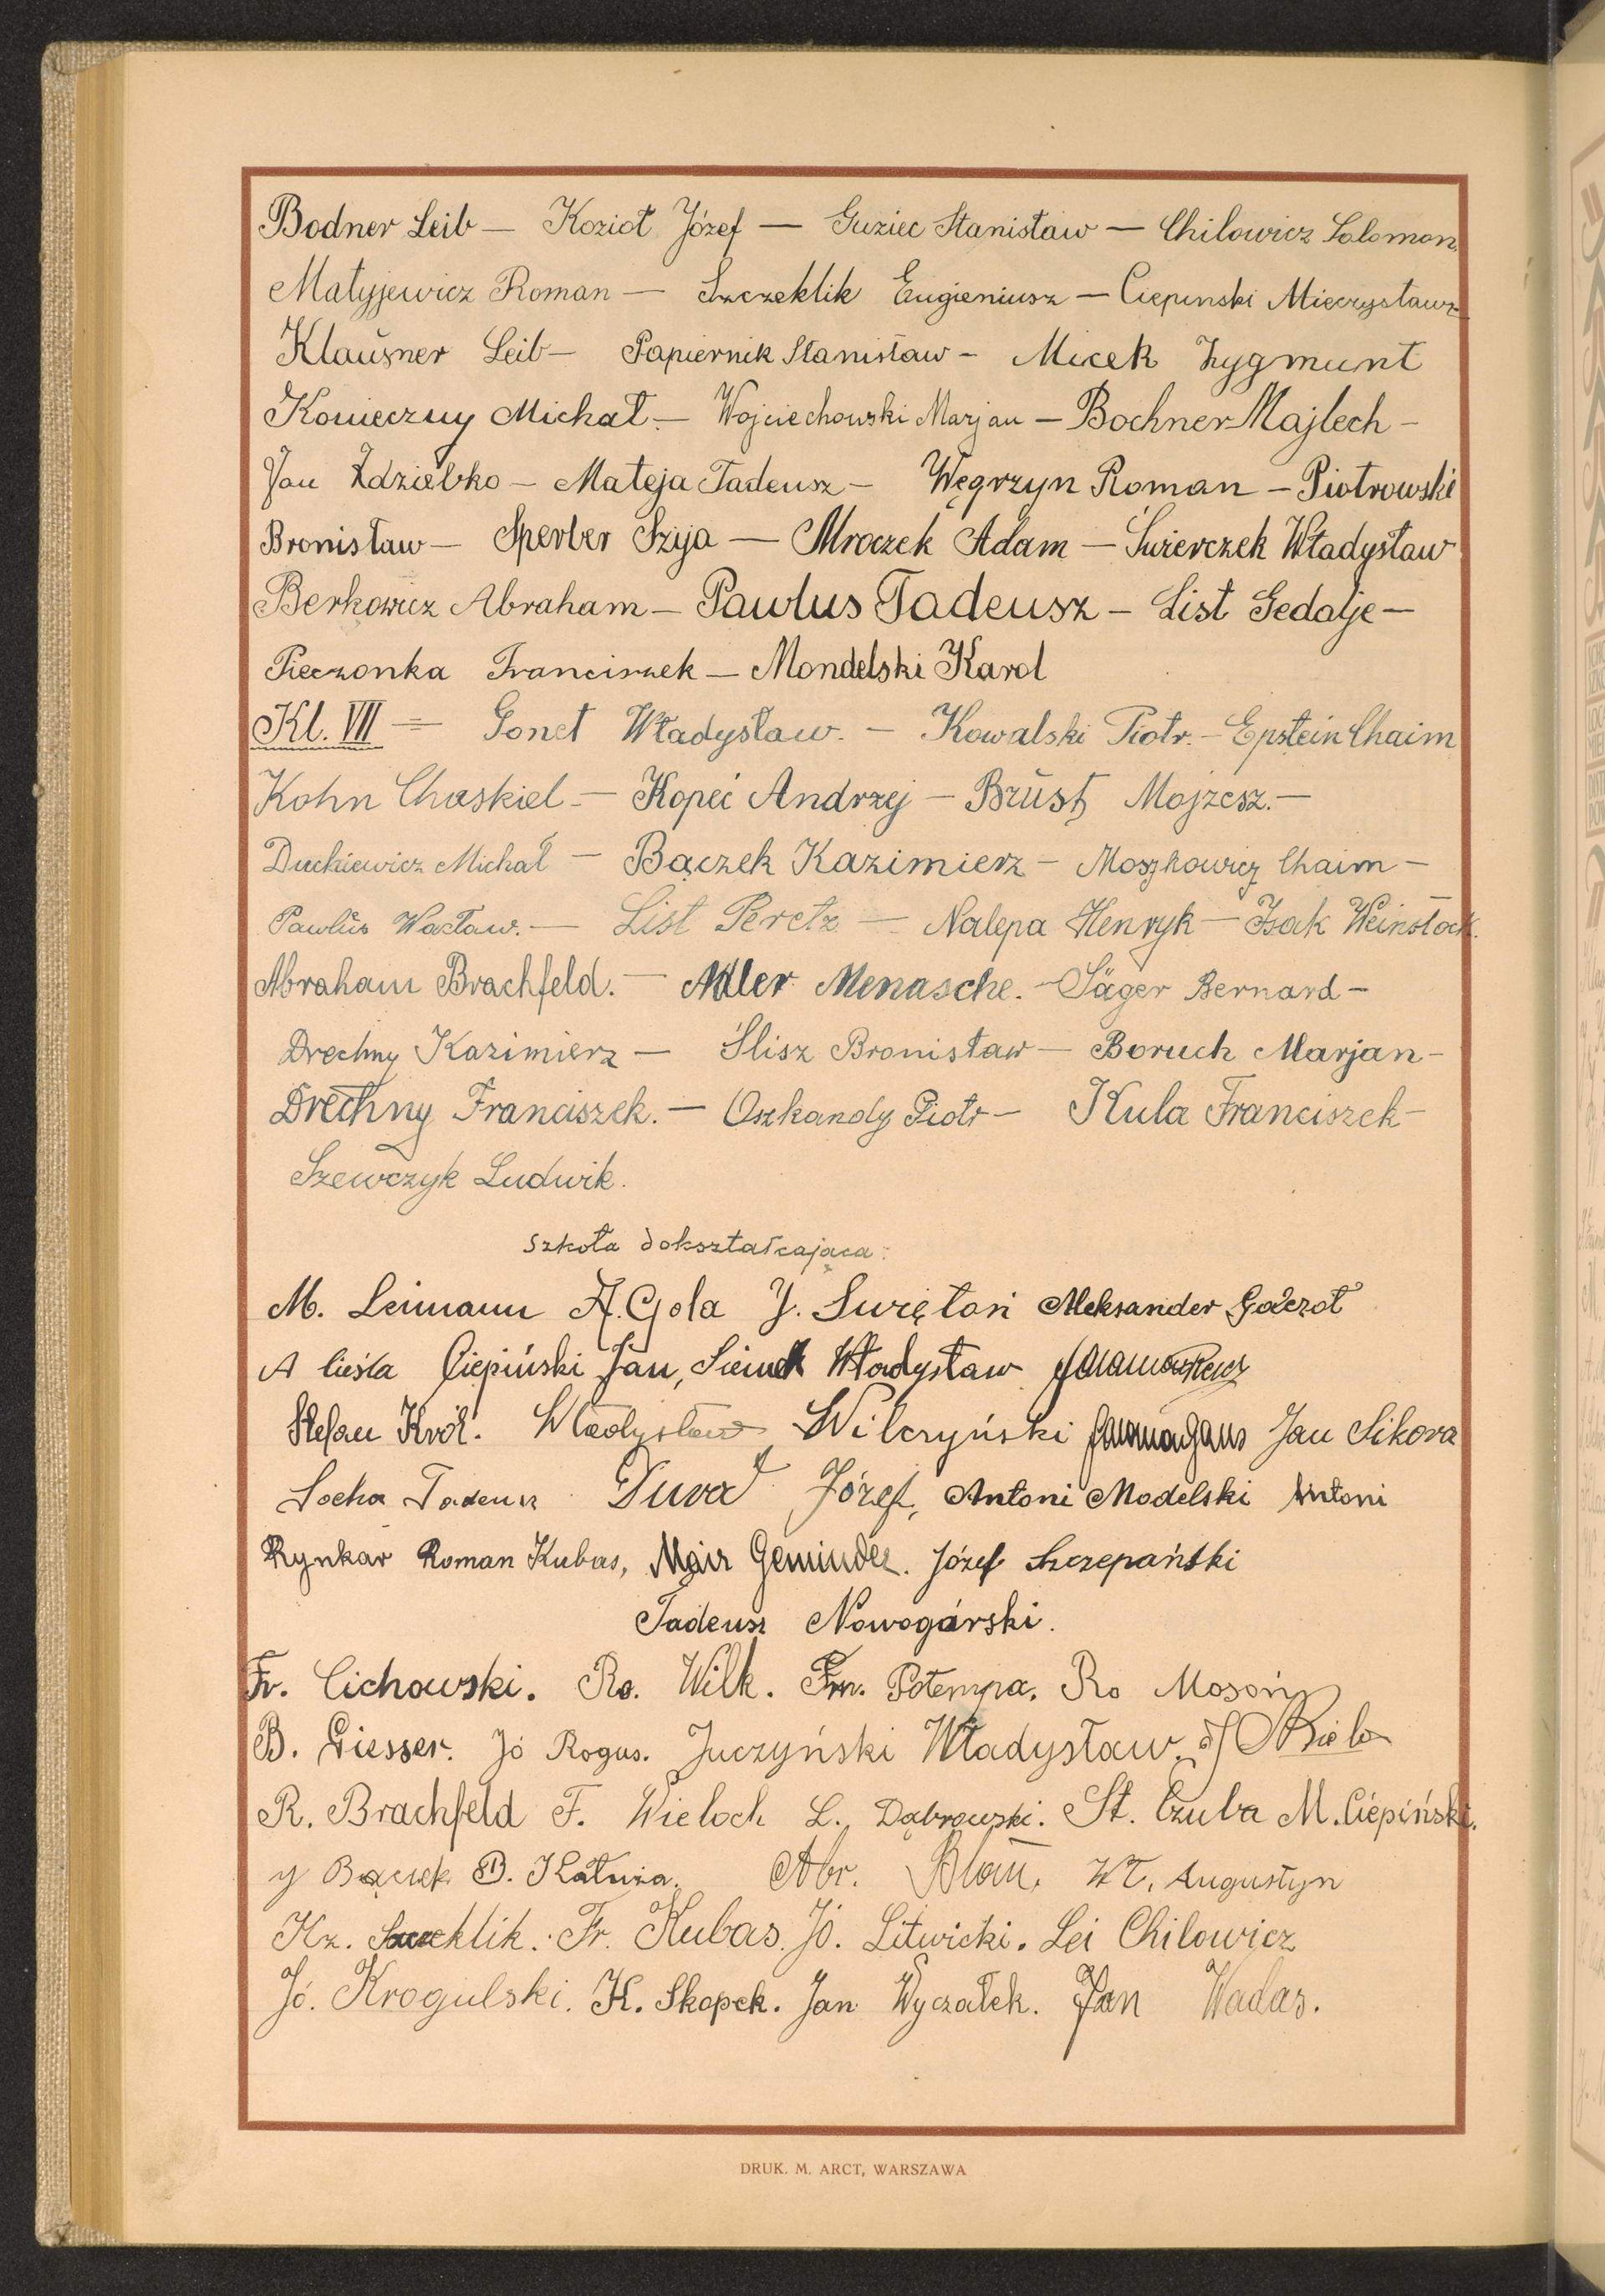 Bodner Leib — Kozioł Józef — Guziec Stanisław — Chilowicz Salomon
Matyjewicz Roman — Szczeklik Eugieniusz — Ciepinski Mieczysław
Klaŭsner Leib — Papiernik Stanisław — Micek Zygmunt
Konieczny Michał — Wojciechowski Marjan — Bochner Majlech —
Jan Ździebko — Mateja Tadeusz — Węgrzyn Roman — Piotrowski
Bronisław — Sperber Szyja — Mroczek Adam — Świerczek Władysław
Berkowicz Abraham — Pawlus Tadeusz — List Gedalje —
Pieczonka Franciszek — Mondelski Karol
Kl. VII = Gonet Władysław. — Kowalski Piotr. — Epstein Chaim
Kohn Chaskiel — Kopeć Andrzej — Brŭst Mojzesz. —
Duckiewicz Michał — Bączek Kazimierz — Moszkowicz Chaim —
Pawlŭs Wacław. — List Peretz — Nalepa Henryk — Isak Weinstock.
Abraham Brachfeld. — Adler Menasche. — Säger Bernard —
Drechny Kazimierz — Ślisz Bronisław — Boruch Marjan —
Drechny Franciszek. — Oszkandy Piotr — Kula Franciszek —
Szewczyk Ludwik.
Szkoła dokształcająca:
M. Leimann A. Gola J. Świętoń Aleksander
A Cieśla Ciepiński Jan, Władysław
Stefan Król. Władysław Wilczyński Jan Sikora
Socha Tadeusz Duvał Józef, Antoni Modelski Antoni
Rynkar Roman Kubas, Majr Geminder. Józef Szczepański
Tadeusz Nowogórski.
Fr. Cichowski. Ro. Wilk. Fr. Potempa. Ro Mosoń
B. Giesser. Jó Rogus. Juczyński Władysław. Bielo
R. Brachfeld F. Wieloch L. Dąbrowski. St. Czuba M. Ciepiński.
J Bączek B. Kałuża. Abr. Blaŭ. Wł. Augustyn
Kz. Szczeklik. Fr. Kubas. Jó. Litwicki. Lei Chilowicz
Jó. Krogulski. K. Skopek. Jan Wyczałek. Jan Wadas.
DRUK. M. ARCT, WARSZAWA